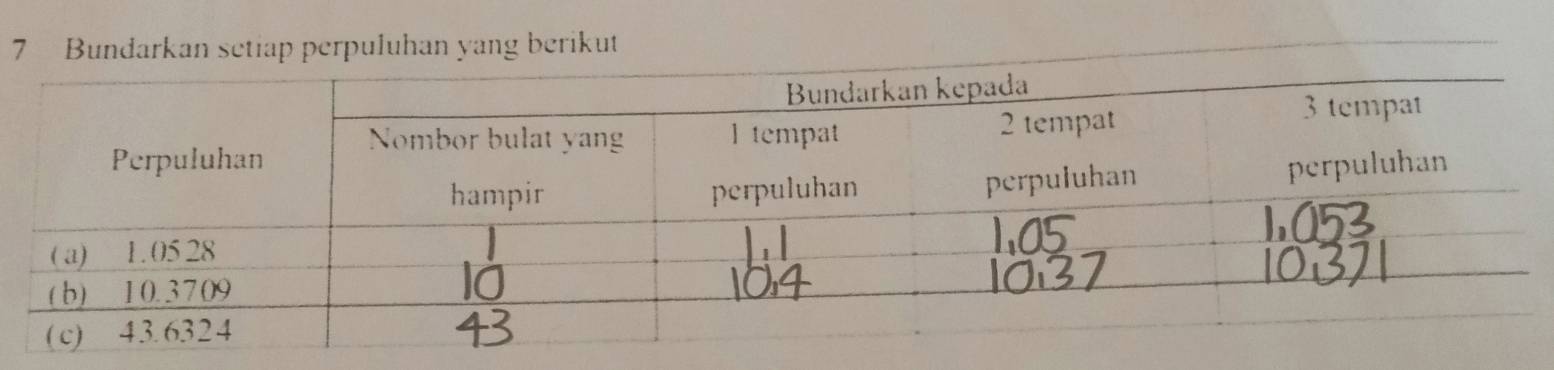 7 Bundarkan setiap perpuluhan yang berikut
Bundarkan kepada
Perpuluhan Nombor bulat yang hampir 1 tempat perpuluhan 2 tempat perpuluhan 3 tempat perpuluhan
(a) 1.0528 1 1.1 1.05 1.053
(b) 10.3709 10 10.4 10.37 10.371
(c) 43.6324 43